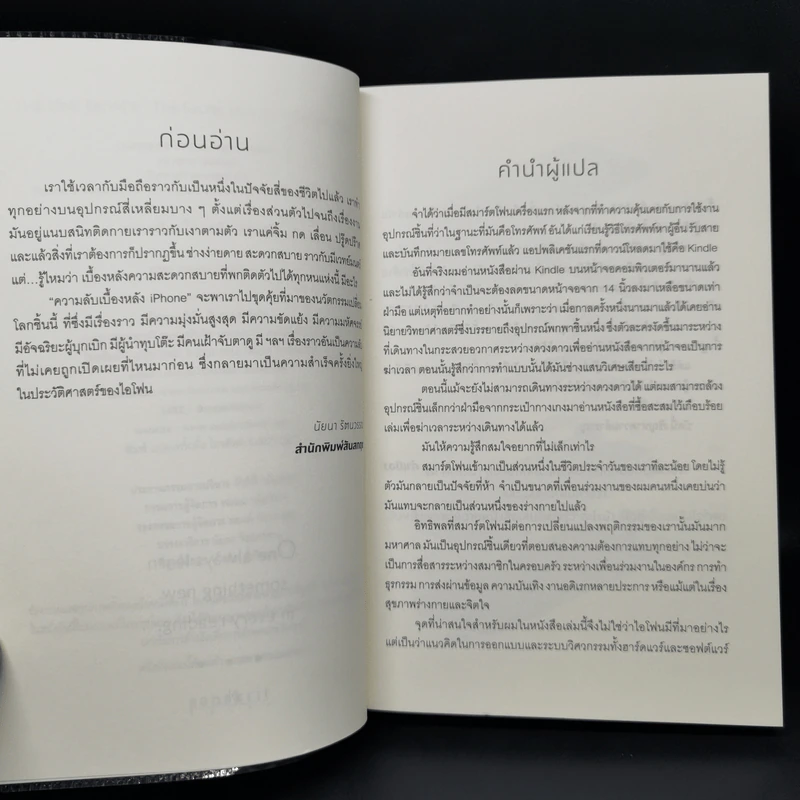 ก่อนอ่าน
เราใช้เวลากับมือถือราวกับเป็นหนึ่งในปัจจัยสี่ของชีวิตไปแล้ว เรา
ทุกอย่างบนอุปกรณ์สี่เหลี่ยมบาง ๆ ตั้งแต่เรื่องส่วนตัวไปจนถึงเรื่องงาน
มันอยู่แนบสนิทติดกายเราราวกับเงาตามตัว เราแค่จิ้ม กด เลื่อน ปรู๊ดปร๊าด
และแล้วสิ่งที่เราต้องการก็ปรากฏขึ้น ช่างง่ายดาย สะดวกสบาย ราวกับมีเวทย์มนตร์
แต่...รู้ไหมว่า เบื้องหลังความสะดวกสบายที่พกติดตัวไปได้ทุกหนแห่งนี้ มีอะไร
"ความลับเบื้องหลัง iPhone" จะพาเราไปขุดคุ้ยที่มาของนวัตกรรมเปลี่ยน
โลกชิ้นนี้ ที่ซึ่งมีเรื่องราว มีความมุ่งมั่นสูงสุด มีความขัดแย้ง มี
มีอัจฉริยะผู้บุกเบิก มีผู้นำทุบโต๊ะ มีคนเฝ้าจับตาดู มี ฯลฯ เรื่องราวอันเป็น
ที่ไม่เคยถูกเปิดเผยที่ไหนมาก่อน ซึ่งกลายมาเป็นความสำเร็จครั้งยิ่งใหญ่
ในประวัติศาสตร์ของไอโฟน
นัยนา
สำนักพิมพ์
คำนำผู้แปล
จำได้ว่าเมื่อมีสมาร์ตโฟนเครื่องแรก หลังจากที่ทำความคุ้นเคยกับการใช้งาน
อุปกรณ์ชิ้นที่ว่าในฐานะที่มันคือโทรศัพท์ อันได้แก่เรียนรู้วิธีโทรศัพท์หาผู้อื่น รับสาย
และบันทึกหมายเลขโทรศัพท์แล้ว แอปพลิเคชันแรกที่ดาวน์โหลดมาใช้คือ Kindle
อันที่จริงผมอ่านหนังสือผ่าน Kindle บนหน้าจอคอมพิวเตอร์มานานแล้ว
และไม่ได้รู้สึกว่าจำเป็นจะต้องลดขนาดหน้าจอจาก 14 นิ้วลงมาเหลือขนาดเท่า
ฝ่ามือ แต่เหตุที่อยากทำอย่างนั้นก็เพราะว่า เมื่อกาลครั้งหนึ่งนานมาแล้วได้เคยอ่าน
นิยายวิทยาศาสตร์ซึ่งบรรยายถึงอุปกรณ์พกพาชิ้นหนึ่ง ซึ่งตัวละครงัดขึ้นมาระหว่าง
ที่เดินทางในกระสวยอวกาศระหว่างดวงดาวเพื่ออ่านหนังสือจากหน้าจอเป็นการ
ฆ่าเวลา ตอนนั้นรู้สึกว่าการทำแบบนั้นได้มันช่างแสนวิเศษเสียนี่กระไร
ตอนนี้แม้จะยังไม่สามารถเดินทางระหว่างดวงดาวได้ แต่ผมสามารถล้วง
อุปกรณ์ชิ้นเล็กกว่าฝ่ามือจากกระเป๋ากางเกงมาอ่านหนังสือที่ซื้อสะสมไว้เกือบร้อย
เล่มเพื่อฆ่าเวลาระหว่างเดินทางได้แล้ว
มันให้ความรู้สึกสมใจอยากที่ไม่เล็กเท่าไร
สมาร์ตโฟนเข้ามาเป็นส่วนหนึ่งในชีวิตประจำวันของเราทีละน้อย โดยไม่รู้
ตัวมันกลายเป็นปัจจัยที่ห้า จำเป็นขนาดที่เพื่อนร่วมงานของผมคนหนึ่งเคยบ่นว่า
มันแทบจะกลายเป็นส่วนหนึ่งของร่างกายไปแล้ว
อิทธิพลที่สมาร์ตโฟนมีต่อการเปลี่ยนแปลงพฤติกรรมของเรานั้นมันมาก
มหาศาล มันเป็นอุปกรณ์ชิ้นเดียวที่ตอบสนองความต้องการแทบทุกอย่าง ไม่ว่าจะ
เป็นการสื่อสารระหว่างสมาชิกในครอบครัว ระหว่างเพื่อนร่วมงานในองค์กร การทำ
ธุรกรรม การส่งผ่านข้อมูล ความบันเทิง งานอดิเรกหลายประการ หรือแม้แต่ในเรื่อง
สุขภาพร่างกายและจิตใจ
จุดที่น่าสนใจสำหรับผมในหนังสือเล่มนี้จึงไม่ใช่ว่าไอโฟนมีที่มาอย่างไร
แต่เป็นว่าแนวคิดในการออกแบบและระบบวิศวกรรมทั้งฮาร์ดแวร์และซอฟต์แวร์